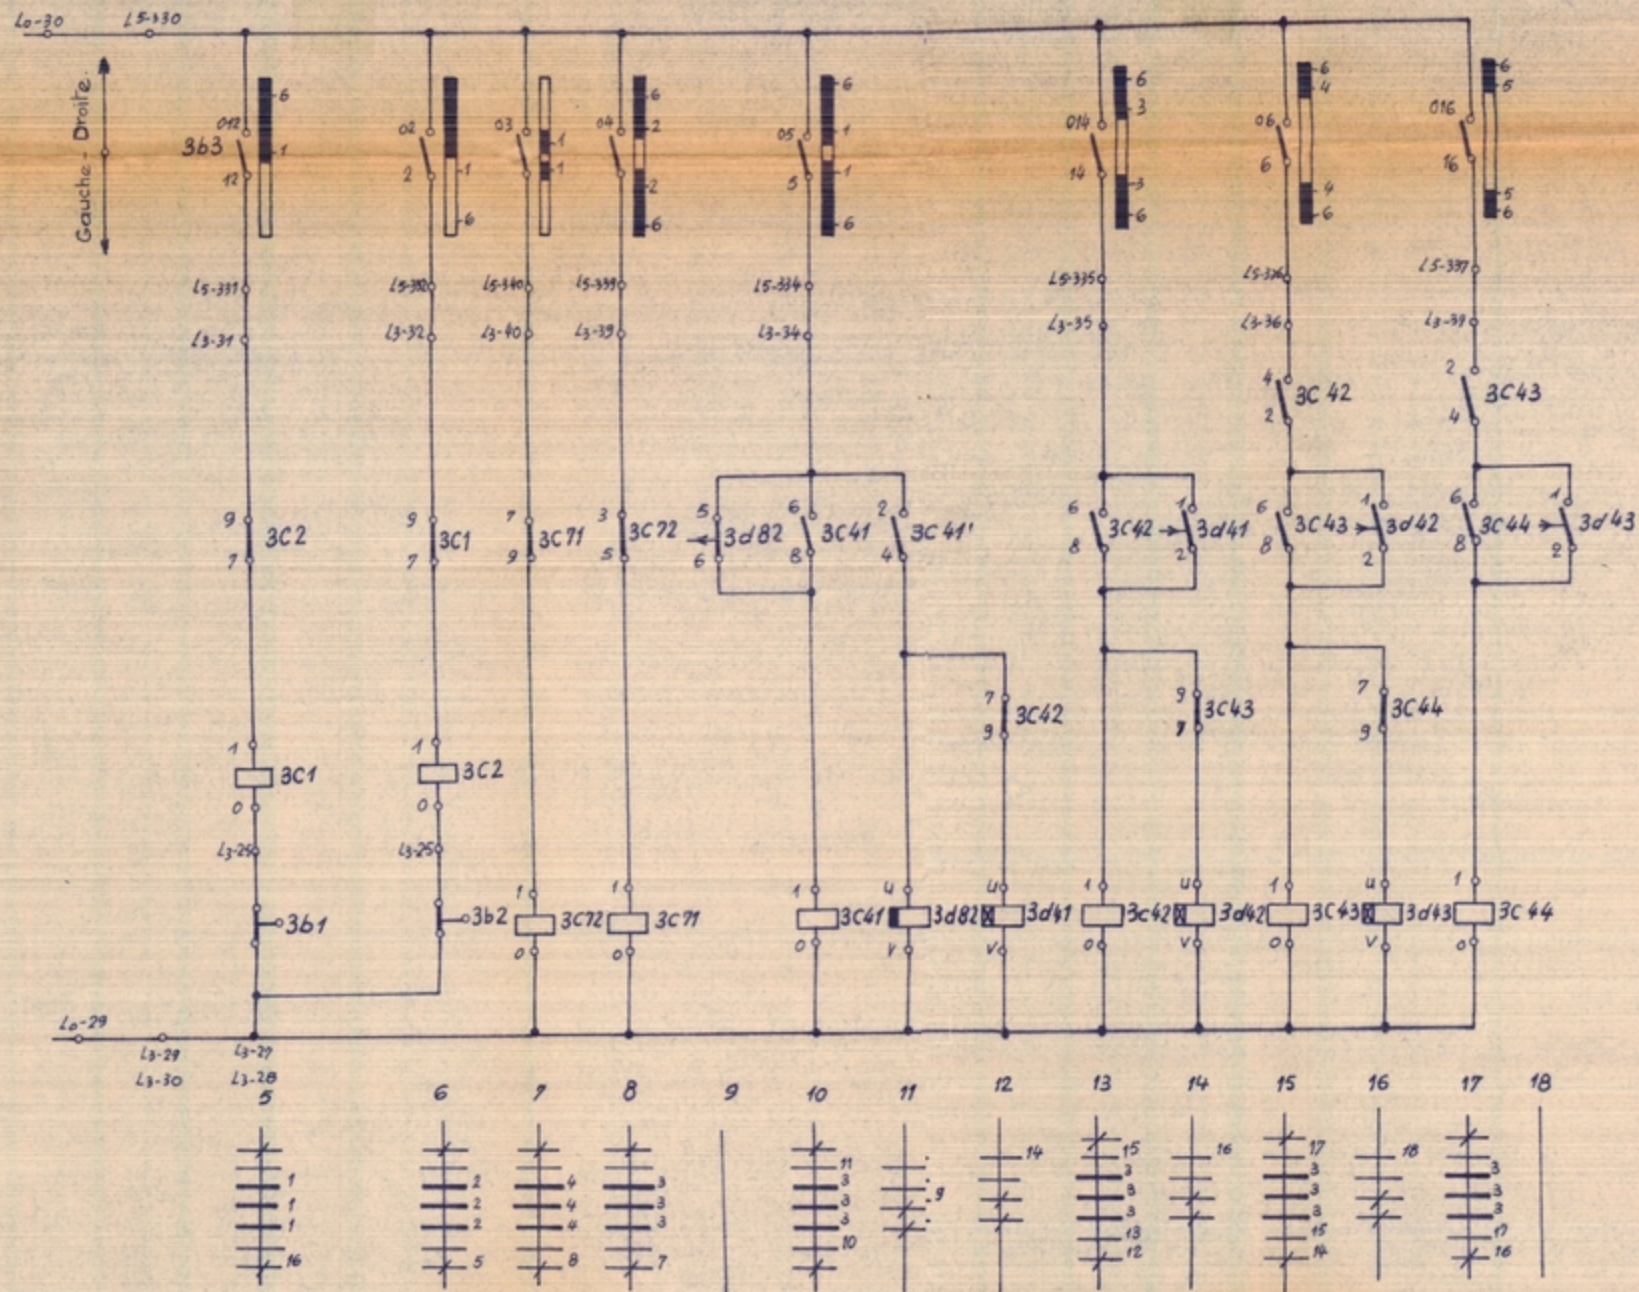 Lo-30 L5-330
Gauche - Droite.
012 3b3 12 6 1
02 2 1 6
03 1 1
04 6 2 2 6
05 5 6 1 1 6
014 14 6 3 3 6
06 6 6 4 4 6
016 16 6 5 5 6
L5-331 L5-332 L5-340 L5-339 L5-334 L5-335 L5-336 L5-337
L3-31 L3-32 L3-40 L3-39 L3-34 L3-35 L3-36 L3-39
4 3C42 2
2 3C43 4
9 3C2 7
9 3C1 7
7 3C71 9
3 3C72 5
5 3d82 6
6 3C41 8
2 3C41' 4
6 3C42 8
1 3d41 2
6 3C43 8
1 3d42 2
6 3C44 8
1 3d43 2
7 3C42 9
9 3C43 7
7 3C44 9
1 3C1 0
1 3C2 0
L3-25 L3-25
3b1 3b2
1 3C72 0
1 3C71 0
1 3C41 0
u 3d82 v
u 3d41 v
1 3C42 0
u 3d42 v
1 3C43 0
u 3d43 v
1 3C44 0
Lo-29
L3-29 L3-27
L3-30 L3-28
5 6 7 8 9 10 11 12 13 14 15 16 17 18
1 1 1 16
2 2 2 5
4 4 4 8
3 3 3 7
11 3 3 3 10
9
14
15 3 3 3 13 12
16
17 3 3 3 15 14
18
3 3 3 17 16